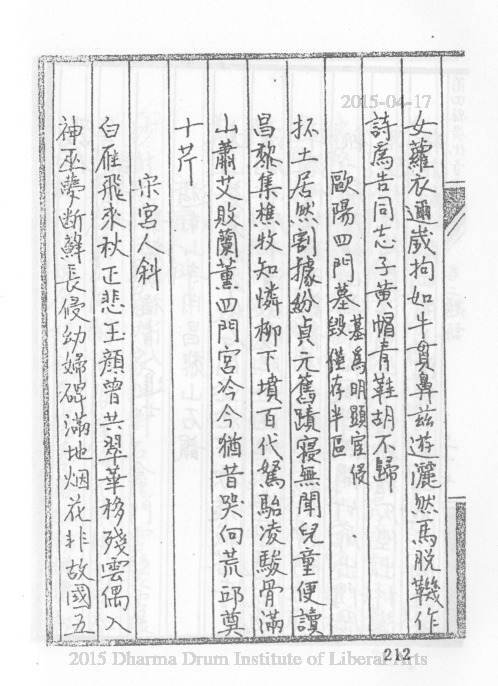 2015-04-17
女蘿衣邇歲拘如牛貫鼻茲遊灑然馬脫鞿作
詩為告同志子黃帽青鞋胡不歸
歐陽四門墓墓為明顯宦侵毀僅存半區
抔土居然割據紛貞元舊蹟寢無聞兒童便讀
昌黎集樵牧知憐柳下墳百代駑駘凌駿骨滿
山蕭艾敗蘭薰四門宮冷今猶昔哭向荒邱奠
十芹
宋宮人斜
白雁飛來秋正悲玉顏曾共翠華移殘雲偶入
神巫夢斷蘚長侵幼婦碑滿地烟花非故國五
212
2015 Dharma Drum Institute of Liberal Arts